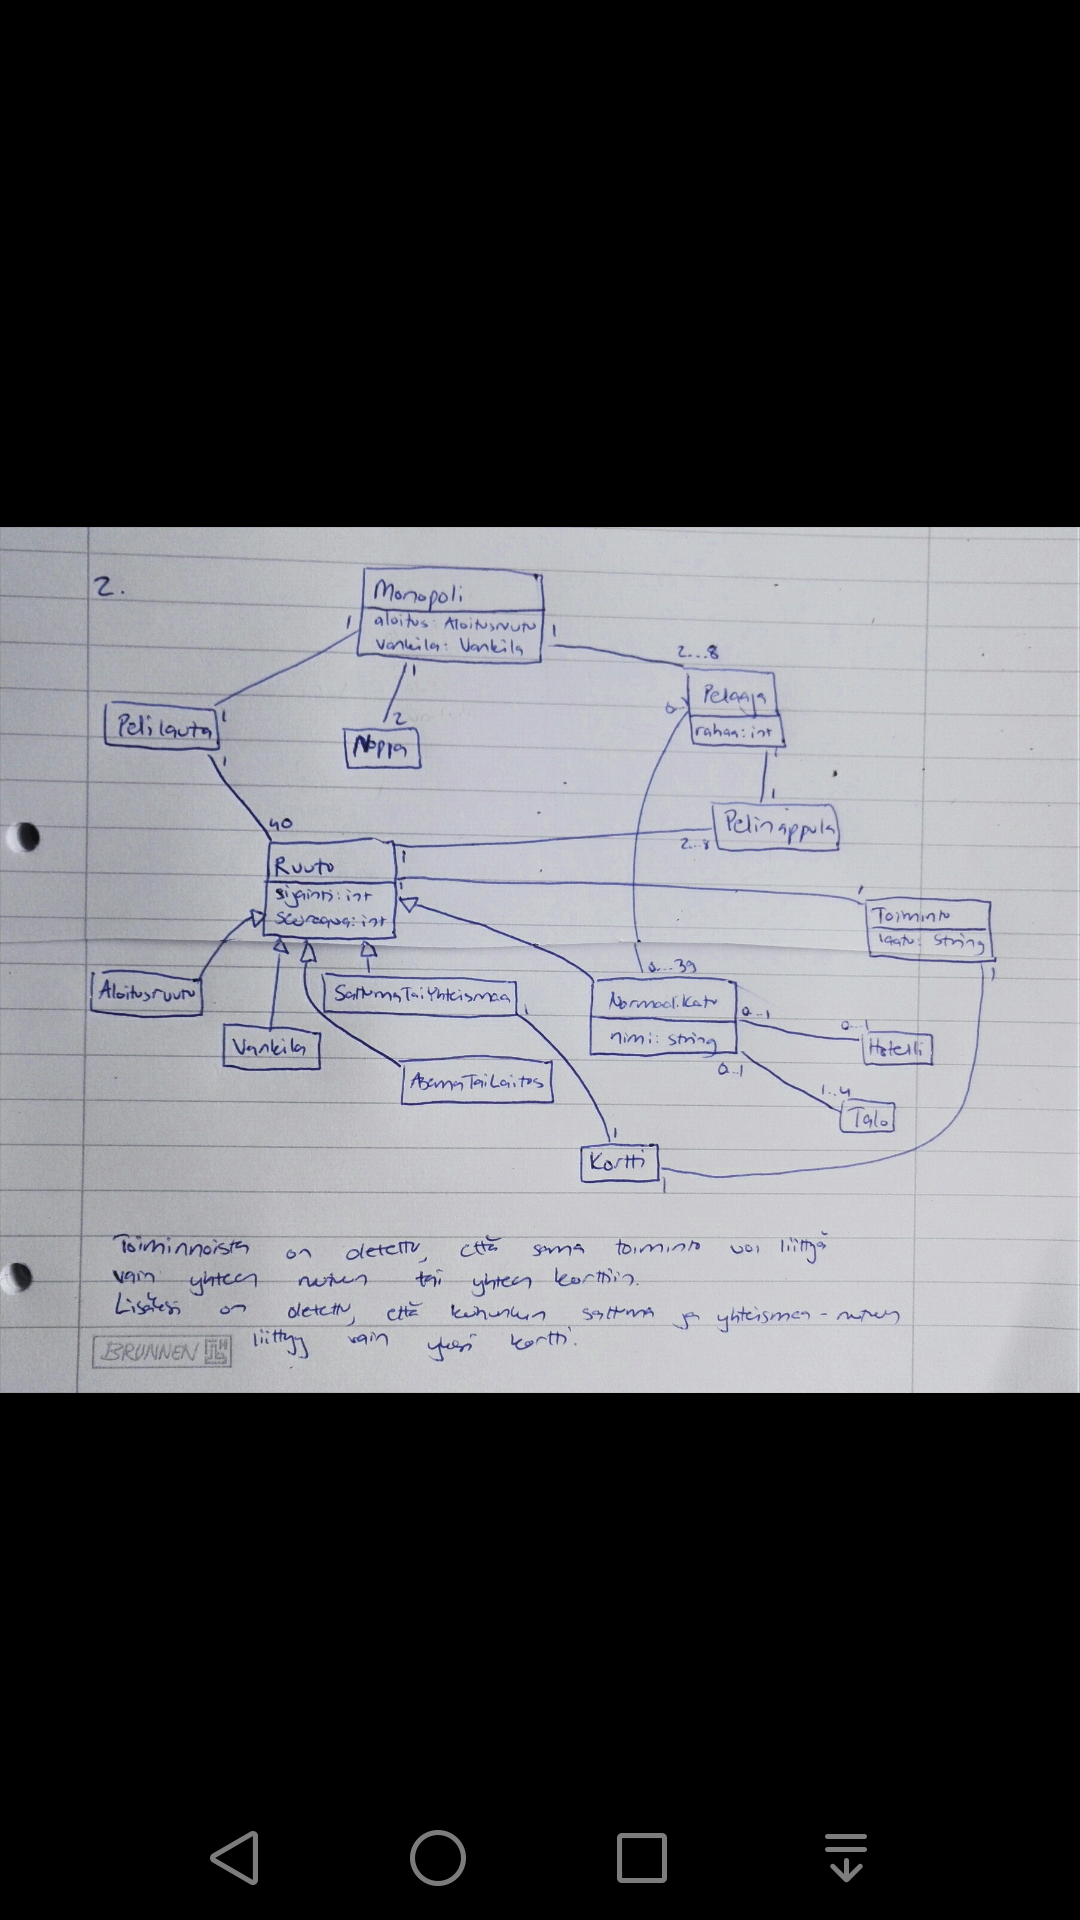 2.
Monopoli
aloitus: Aloitusruutu
vankila: Vankila
1
1
1
2...8
Pelaaja
rahaa: int
0..1
Pelilauta
1
1
2
Noppa
1
1
Pelinappula
2..8
40
Ruutu
sijainti: int
seuraava: int
1
1
1
Toiminto
laatu: String
1
Aloitusruutu
SattumaTaiYhteismaa
1
0...39
Normaalikatu
nimi: string
0..1
0..1
Hotelli
Vankila
AsemaTaiLaitos
0..1
1..4
Talo
1
Kortti
1
Toiminnoista on oletettu, että sama toiminto voi liittyä
vain yhteen ruutuun tai yhteen korttiin.
Lisäksi on oletettu, että kuhunkin sattuma ja yhteismaa-ruutuun
liittyy vain yksi kortti.
BRUNNEN